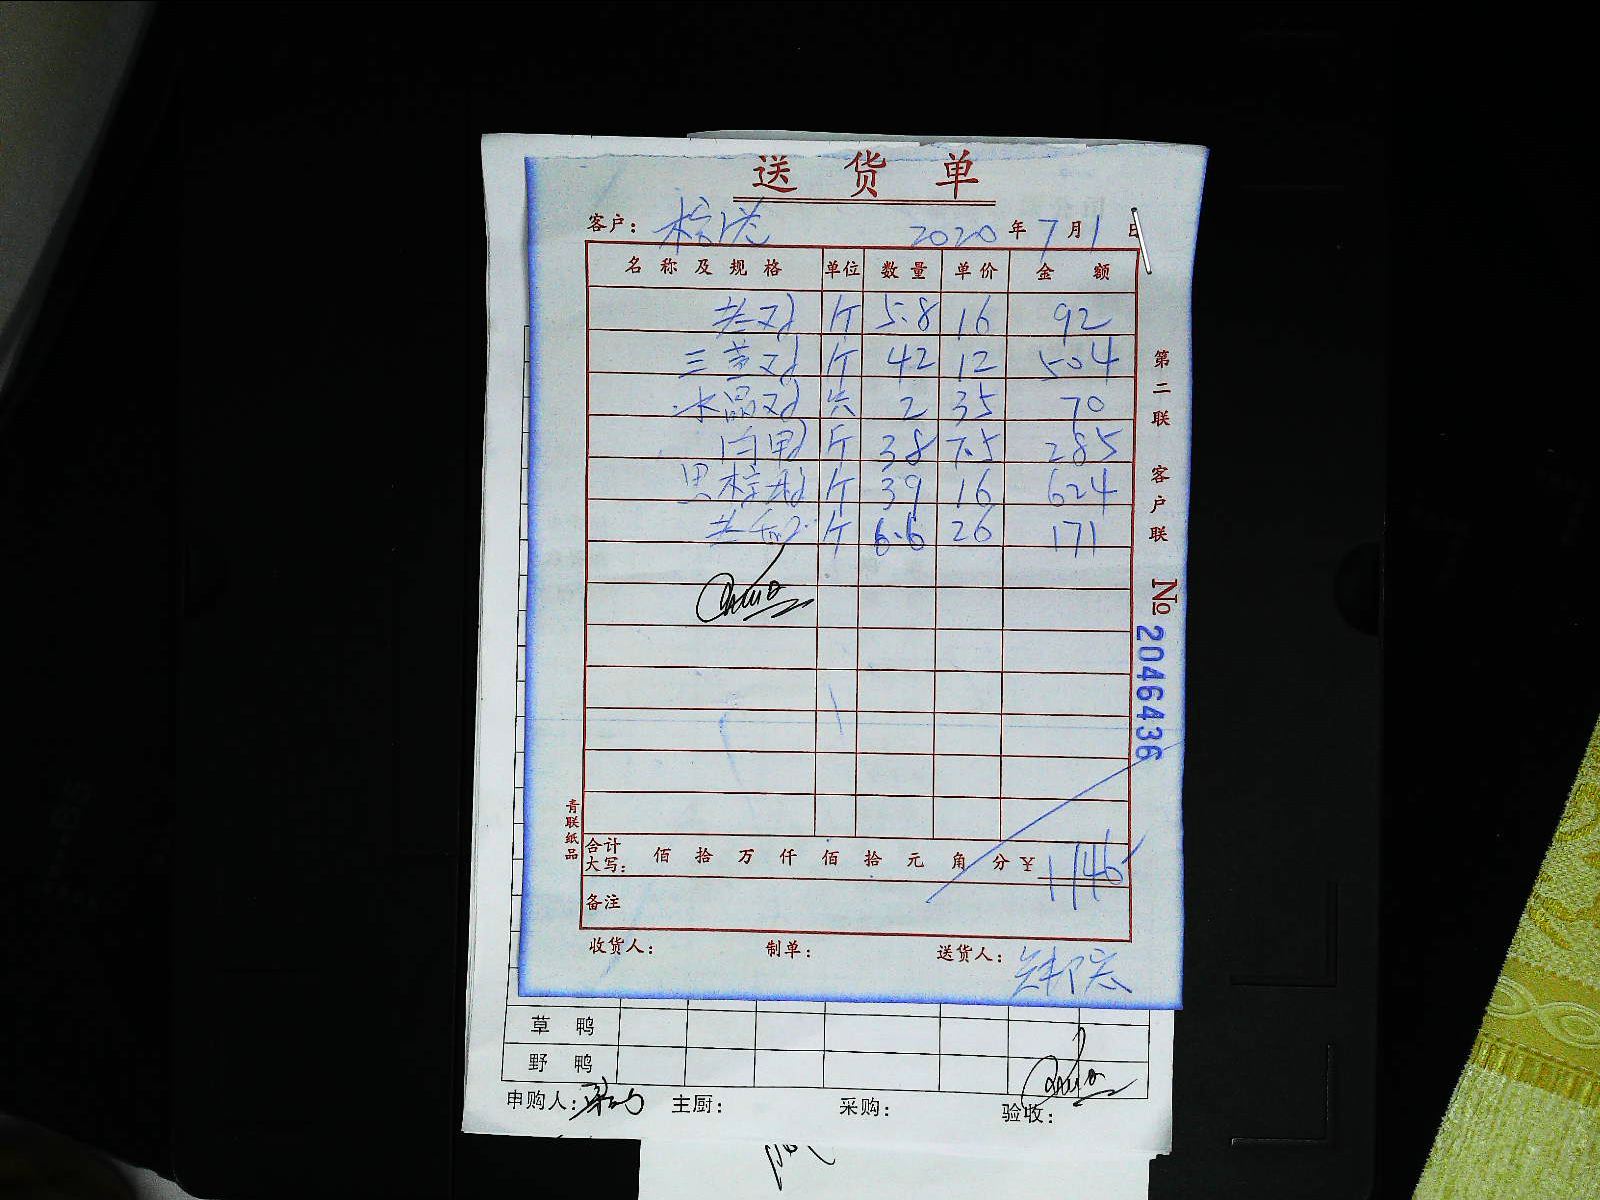 送 货 单
客户： 2020 年 7 月 1 日
名 称 及 规 格 单位 数 量 单 价 金 额
老刈 斤 5.8 16 92
三黄刈 斤 42 12 504
水晶刈 2 35 70
斤 38 7.5 285
黑棕 斤 39 16 624
老 斤 6.6 26 171
第二联 客户联
№ 2046436
青联纸品
合计大写： 佰 拾 万 仟 佰 拾 元 角 分 ￥ 1746
备注
收货人： 制单： 送货人：
草 鸭
野 鸭
申购人： 主厨： 采购： 验收：